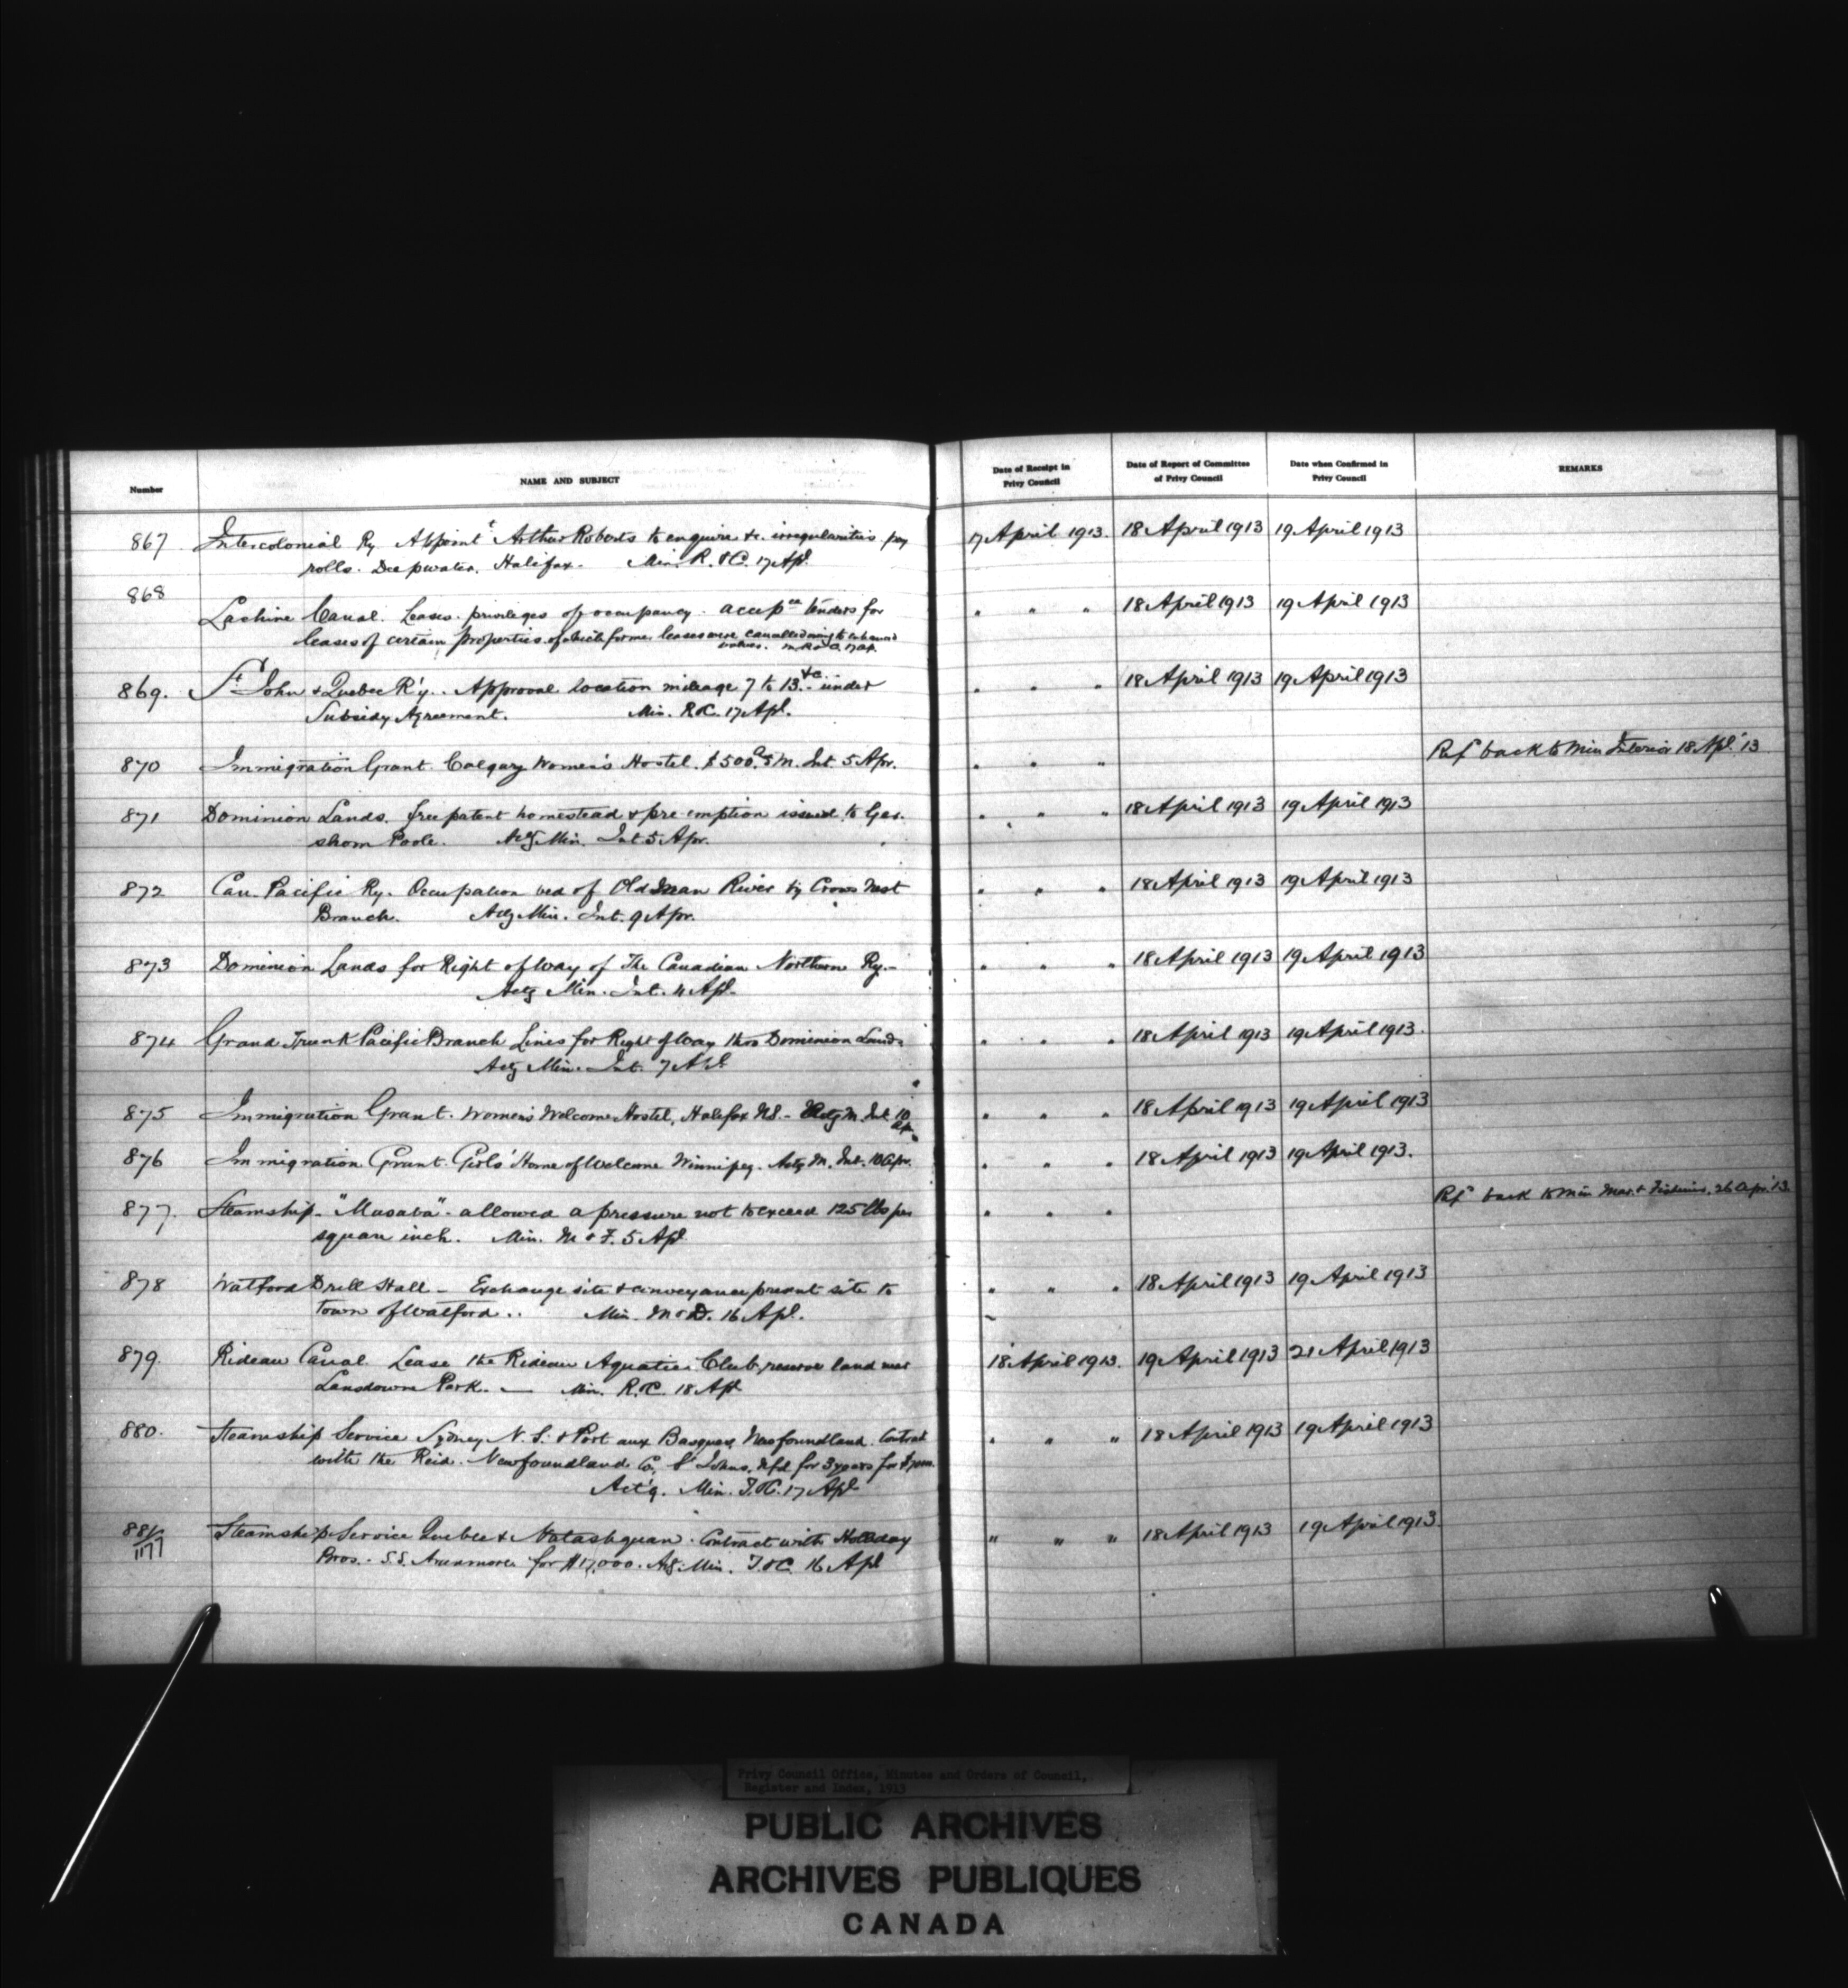 Number
NAME AND SUBJECT
Date of Receipt in
Privy Council
Date of Report of Committee
of Privy Council
Date when Confirmed in
Privy Council
REMARKS
867 Intercolonial Ry Appoint t Arthur Roberts to enquire &c. irregularities pay 17 April 1913. 18 April 1913 19 April 1913
rolls. Deepwater, Halifax. Min. R. & C. 17 Apl.
868
Lachine Canal. Leases. privileges of occupancy. accep ce tenders for " " " 18 April 1913 19 April 1913
leases of certain properties of which former leases were cancelled owing to enhanced
values. M. R & C. 17 Ap.
869. St John & Quebec R'y. Approval location mileage 7 to 13 &c. under " " " 18 April 1913 19 April 1913
Subsidy Agreement. Min. R & C. 17 Apl.
870 Immigration Grant. Calgary Women's Hostel. $500. M. Int. 5 Apr. " " " Ref d back to Min Interior 18 Apl. '13
871 Dominion Lands. free patent homestead & pre-emption issued to Ger- " " " 18 April 1913 19 April 1913
shom Poole. Actg Min. Int 5 Apr.
872 Can. Pacific Ry. Occupation bed of Old Man River by Crows Nest " " " 18 April 1913 19 April 1913
Branch. Actg Min. Int. 9 Apr.
873 Dominion Lands for Right of Way of The Canadian Northern Ry.- " " " 18 April 1913 19 April 1913
Actg Min. Int. 4 Apl.
874 Grand Trunk Pacific Branch Lines for Right of Way thro Dominion Lands " " " 18 April 1913 19 April 1913.
Actg Min. Int. 7 Apl.
875 Immigration Grant. Women's Welcome Hostel, Halifax N.S. - Actg M. Int. 10 " " " 18 April 1913 19 April 1913
Ap.
876 Immigration Grant. Girls' Home of Welcome Winnipeg. Actg M. Int. 10 Apr. " " " 18 April 1913 19 April 1913.
877. Steamship - "Masaba" - allowed a pressure not to exceed 125 lbs per " " " Ref d back to Min Mar. & Fisheries. 26 Apr. '13.
square inch. Min. M & F. 5 Apl
878 Watford Drill Hall - Exchange site & conveyance present site to " " " 18 April 1913 19 April 1913
town of Watford.. Min. M & D. 16 Apl.
879. Rideau Canal. Lease the Rideau Aquatic Club reserve land near 18 April 1913. 19 April 1913 21 April 1913
Lansdowne Park. - Min. R. & C. 18 Apl
880. Steamship Service Sydney N. S. & Port aux Basques, Newfoundland. Contract " " " 18 April 1913 19 April 1913
with the Reid Newfoundland Co, St Johns, Nfd for 3 years for
Act'g. Min. T. & C. 17 Apl
881/1177 Steamship Service Quebec & Natashquan. Contract with Holliday " " " 18 April 1913 19 April 1913.
Bros. - S.S. for $17,000. Actg. Min. T. & C. 16 Apl
Privy Council Office, Minutes and Orders of Council,
Register and Index, 1913
PUBLIC ARCHIVES
ARCHIVES PUBLIQUES
CANADA